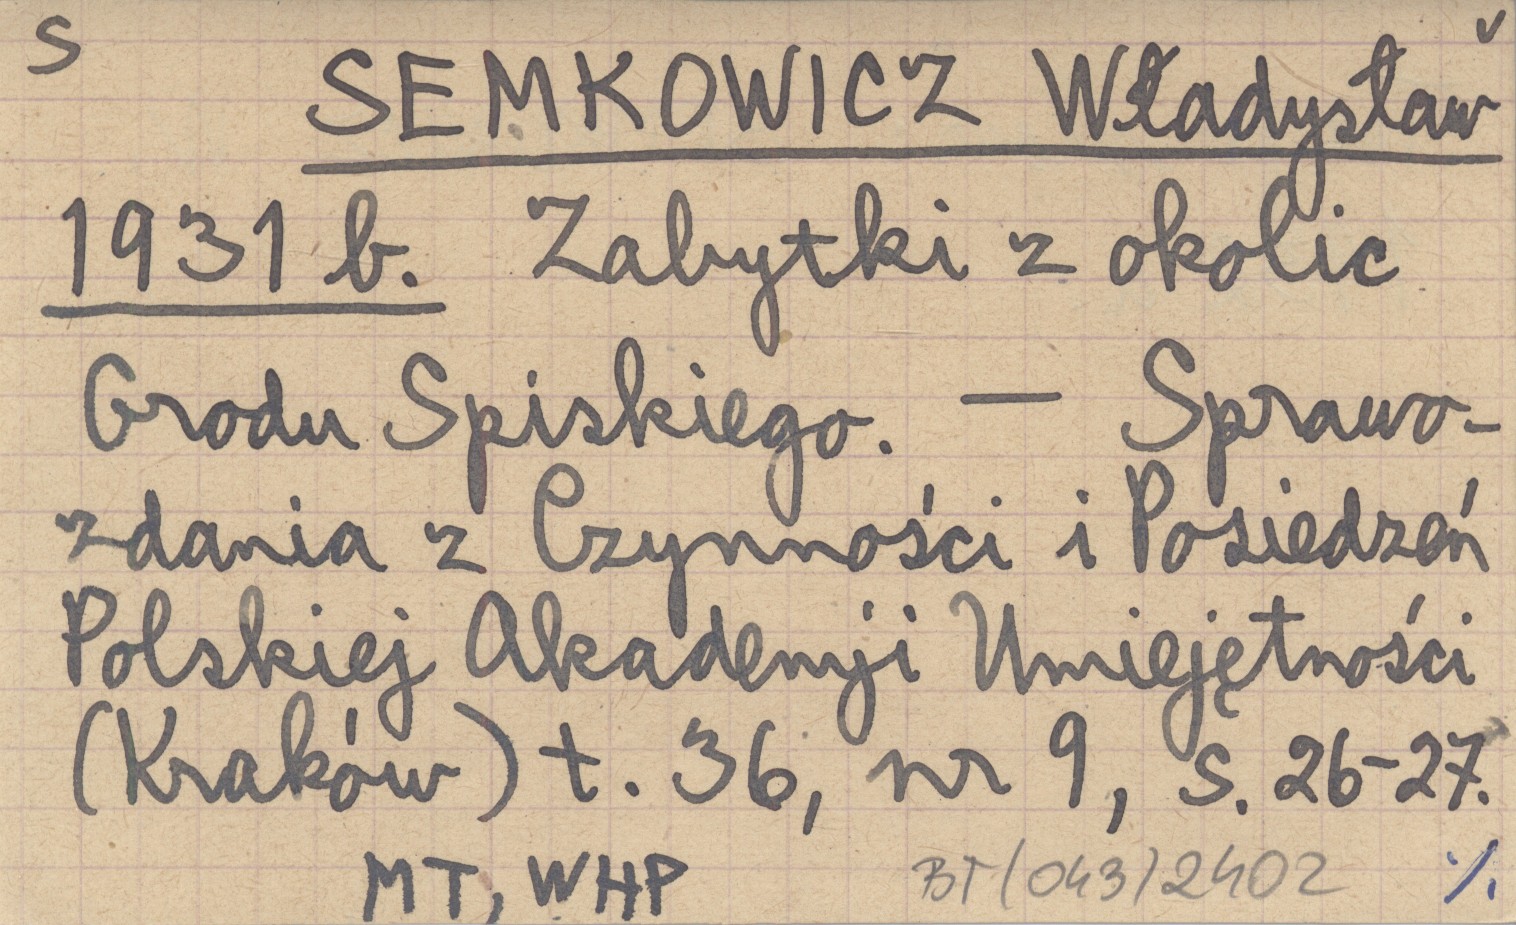 S
SEMKOWICZ Władysław
1931 b. Zabytki z okolic
Grodu Spiskiego. — Sprawo-
zdania z Czynności i Posiedzeń
Polskiej Akademji Umiejętności
(Kraków) t. 36, nr 9, s. 26-27.
MT, WHP BT(043)2402 ./.